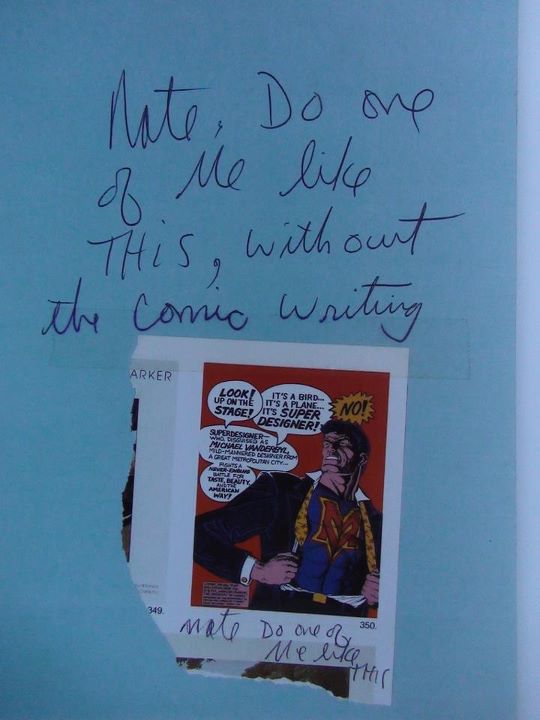 Nate, Do one
of Me like
THiS, without
the Comic Writing
ARKER
LOOK!
UP ON THE
STAGE!
IT'S A BIRD...
IT'S A PLANE...
IT'S SUPER
DESIGNER!
NO!
SUPERDESIGNER—
WHO, DISGUISED AS
MICHAEL VANDERBYL,
MILD-MANNERED DESIGNER FROM
A GREAT METROPOLITAN CITY...
FIGHTS A
NEVER-ENDING
BATTLE FOR
TASTE, BEAUTY,
AND THE
AMERICAN
WAY!
349.
350.
Nate Do one of
Me like
THIS